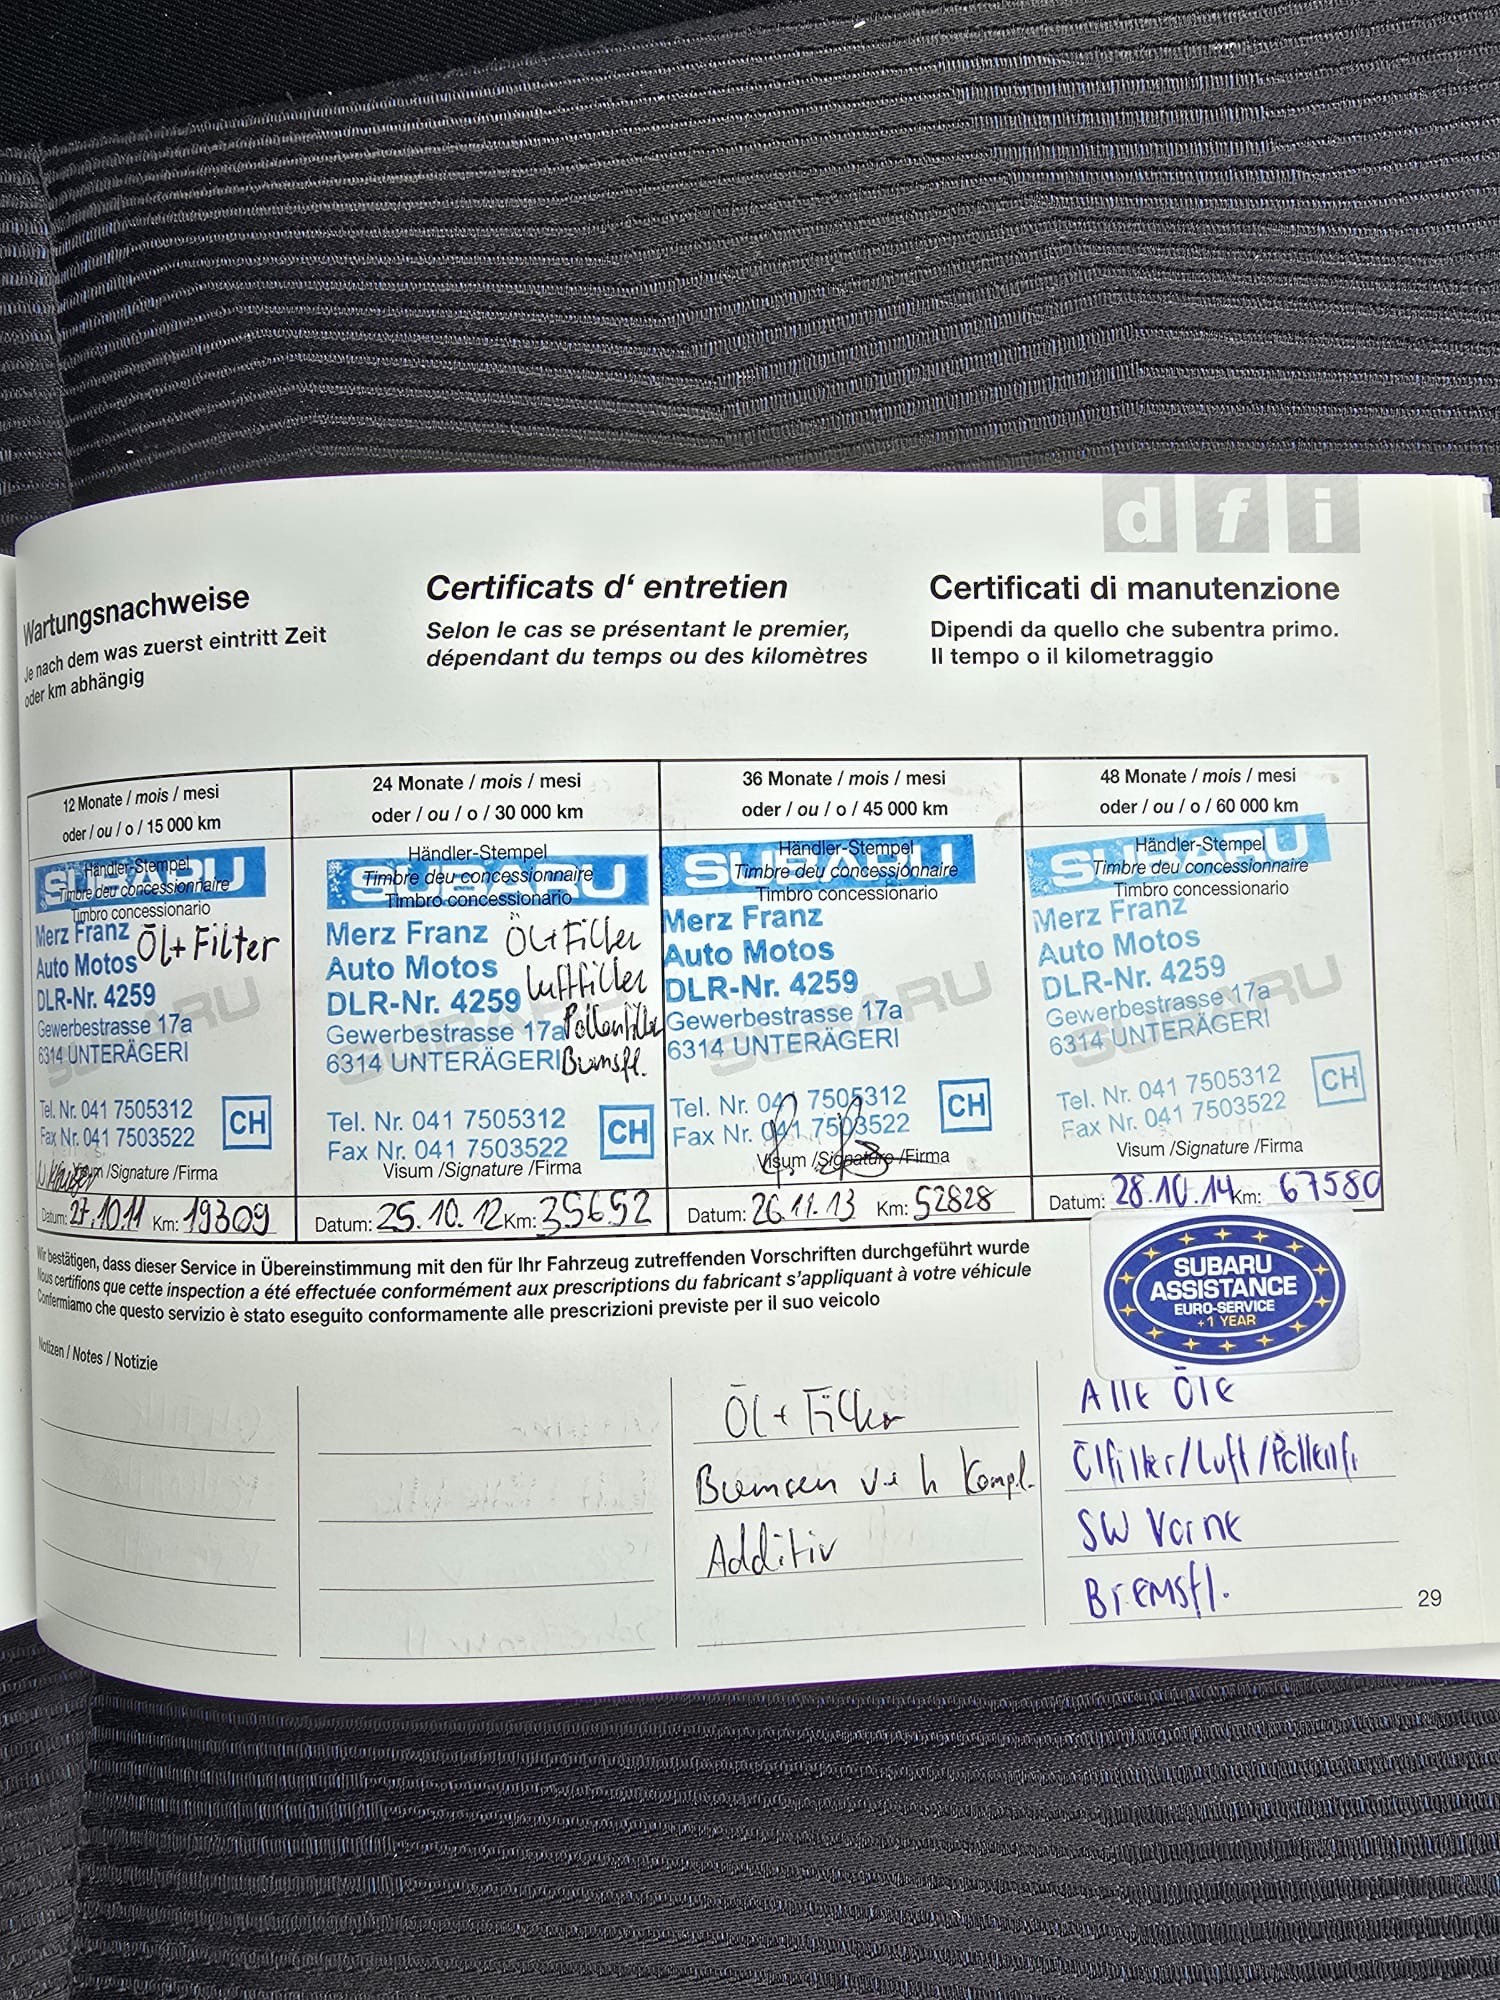 d f i
Wartungsnachweise
Je nach dem was zuerst eintritt Zeit
oder km abhängig
Certificats d' entretien
Selon le cas se présentant le premier,
dépendant du temps ou des kilomètres
Certificati di manutenzione
Dipendi da quello che subentra primo.
Il tempo o il kilometraggio
12 Monate / mois / mesi
oder / ou / o / 15 000 km
SUBARU
Händler-Stempel
Timbre deu concessionnaire
Timbro concessionario
Merz Franz
Öl + Filter
Auto Motos
DLR-Nr. 4259
Gewerbestrasse 17a
6314 UNTERÄGERI
SUBARU
Tel. Nr. 041 7505312
Fax Nr. 041 7503522
CH
Visum /Signature /Firma
Datum: 27.10.11 Km: 19309
24 Monate / mois / mesi
oder / ou / o / 30 000 km
Händler-Stempel
SUBARU
Timbre deu concessionnaire
Timbro concessionario
Merz Franz
Öl + Filter
Auto Motos
Luftfilter
DLR-Nr. 4259
Pollenfilter
Gewerbestrasse 17a
6314 UNTERÄGERI
Bremsfl.
Tel. Nr. 041 7505312
Fax Nr. 041 7503522
CH
Visum /Signature /Firma
Datum: 25.10.12 Km: 35652
36 Monate / mois / mesi
oder / ou / o / 45 000 km
Händler-Stempel
SUBARU
Timbre deu concessionnaire
Timbro concessionario
Merz Franz
Auto Motos
DLR-Nr. 4259
Gewerbestrasse 17a
6314 UNTERÄGERI
SUBARU
Tel. Nr. 041 7505312
Fax Nr. 041 7503522
CH
Visum /Signature /Firma
Datum: 26.11.13 Km: 52828
48 Monate / mois / mesi
oder / ou / o / 60 000 km
SUBARU
Händler-Stempel
Timbre deu concessionnaire
Timbro concessionario
Merz Franz
Auto Motos
DLR-Nr. 4259
Gewerbestrasse 17a
6314 UNTERÄGERI
SUBARU
Tel. Nr. 041 7505312
Fax Nr. 041 7503522
CH
Visum /Signature /Firma
Datum: 28.10.14 Km: 67580
Wir bestätigen, dass dieser Service in Übereinstimmung mit den für Ihr Fahrzeug zutreffenden Vorschriften durchgeführt wurde
Nous certifions que cette inspection a été effectuée conformément aux prescriptions du fabricant s'appliquant à votre véhicule
Confermiamo che questo servizio è stato eseguito conformamente alle prescrizioni previste per il suo veicolo
SUBARU
ASSISTANCE
EURO-SERVICE
+1 YEAR
Notizen / Notes / Notizie
Öl + Filter
Bremsen v + h Kompl.
Additiv
Alle Öle
Ölfilter/Luft/Pollenfi
SW Vorne
Bremsfl.
29